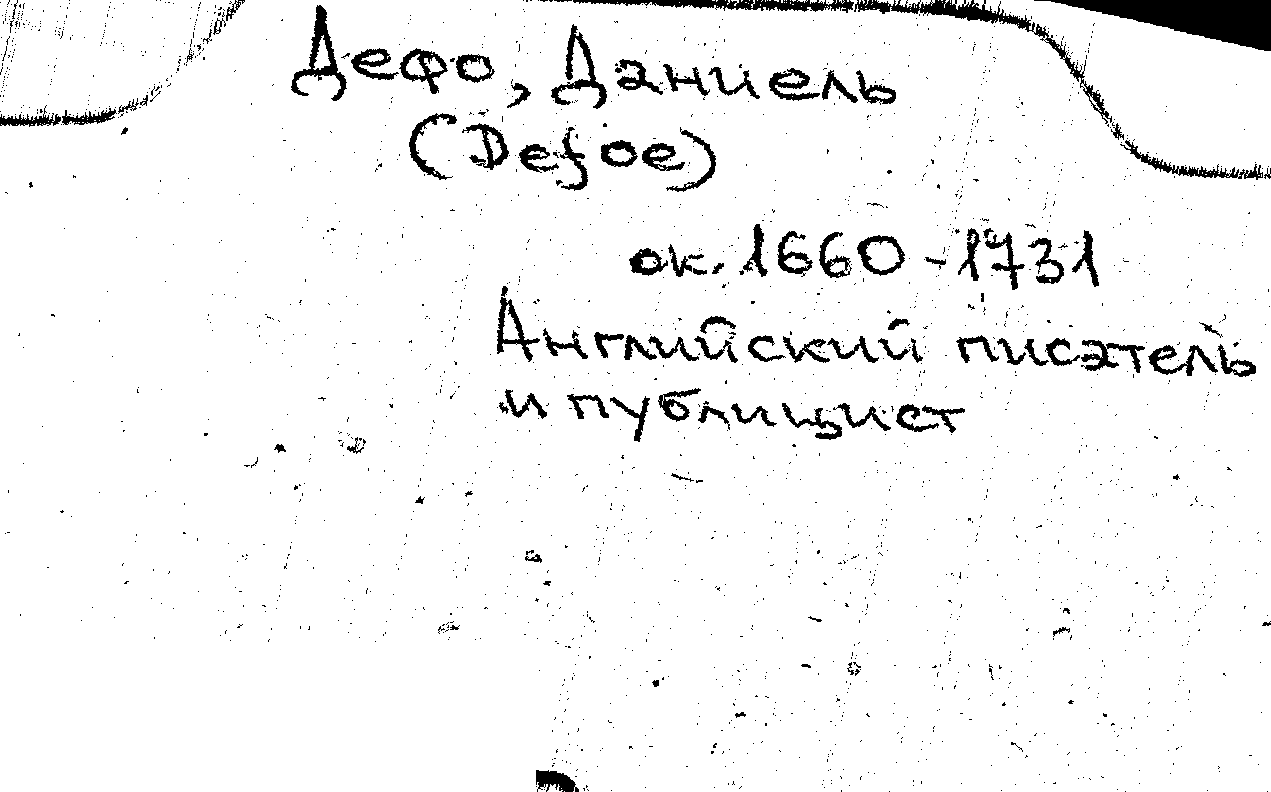 Дефо, Даниель
(Defoe)
ок. 1660-1731
Английский писатель
и публицист